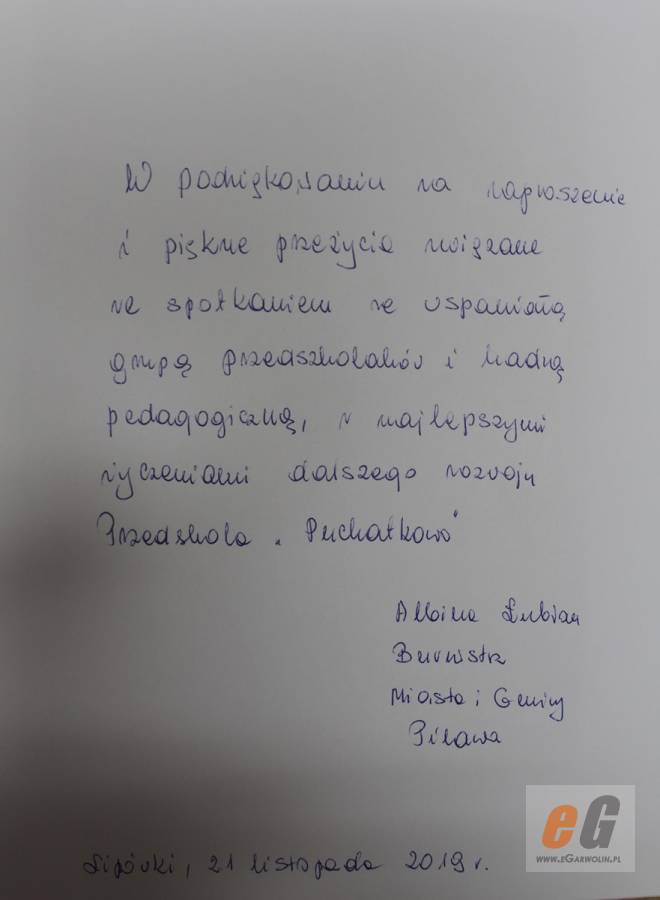 W podziękowaniu za zaproszenie
i piękne przeżycia związane
ze spotkaniem ze wspaniałą
grupą przedszkolaków i kadrą
pedagogiczną, z najlepszymi
życzeniami dalszego rozwoju
Przedszkola „Puchatkowo"
Albina Łubian
Burmistrz
Miasta i Gminy
Pilawa
eG
www.eGarwolin.pl
Lipówki, 21 listopada 2019 r.